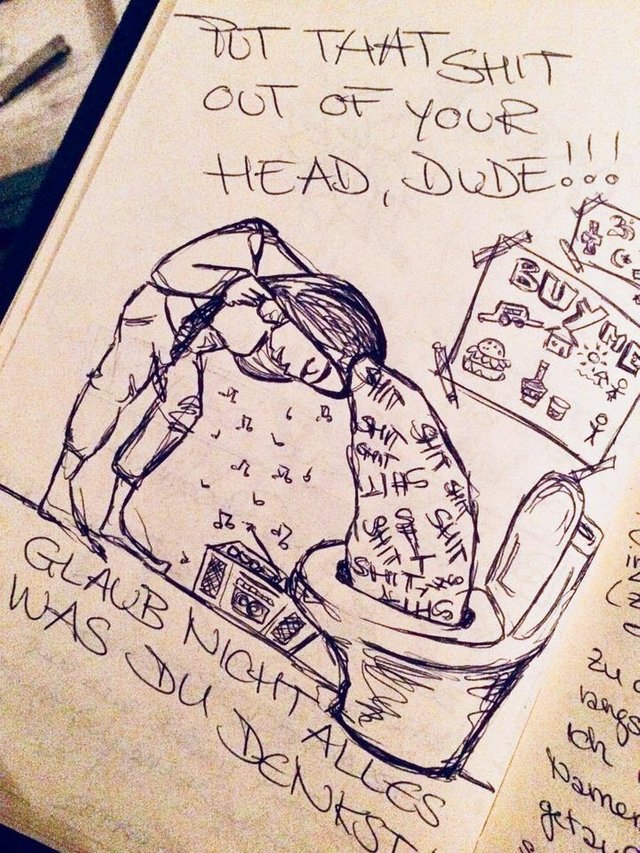 PUT THAT SHIT
OUT OF YOUR
HEAD, DUDE!!!
BUY ME
SHIT
SHIT
SHIT
SHIT
SHIT
SHIT
SHIT
SHIT
SHIT
SHIT
SHIT
GLAUB NICHT ALLES
WAS DU DENKST!
zu
Ich
Namen